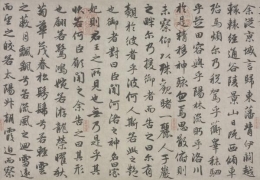 余從京域言歸東藩背伊闕越
轘轅經通谷陵景山日既西傾車
殆馬煩爾乃稅駕乎蘅皋秣駟
乎芝田容與乎陽林流眄乎洛川
於是精移神駭忽焉思散俯則
未察仰以殊觀睹一麗人于巖
之畔爾乃援御者而告之曰爾有
覿於彼者乎彼何人斯若此之豔
也御者對曰臣聞河洛之神名曰宓
妃則君王之所見也無乃是乎其
狀若何臣願聞之余告之曰其形
也翩若驚鴻婉若遊龍榮曜秋
菊華茂春松髣髴兮若輕雲
之蔽月飄颻兮若流風之迴雪遠
而望之皎若太陽升朝霞迫而察